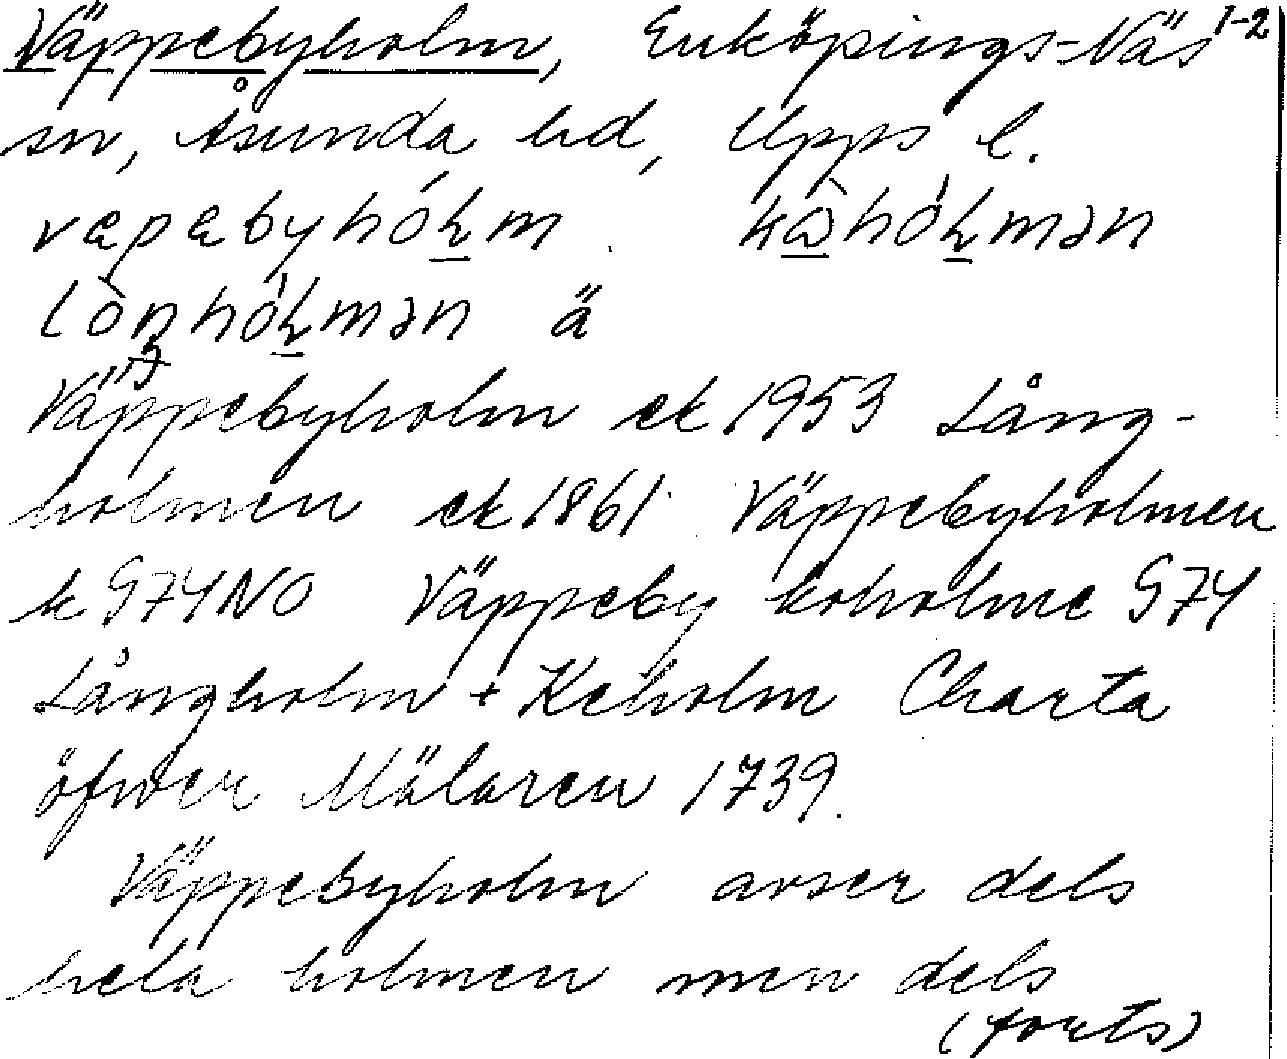 Väppebyholm, Enköpings-Näs 1-2
sn, Åsunda hd, Upps l.
vepebyhólm. kòhólmən
lòŋhólmən ä
Väppebyholm ek 1953 Lång-
holmen ek 1861 Väppebyholmen
k G74NO Väppeby koholme G74
Långholm + Keholm Charta
öfwer Mälaren 1739.
Väppebyholm avser dels
hela holmen men dels
(forts)